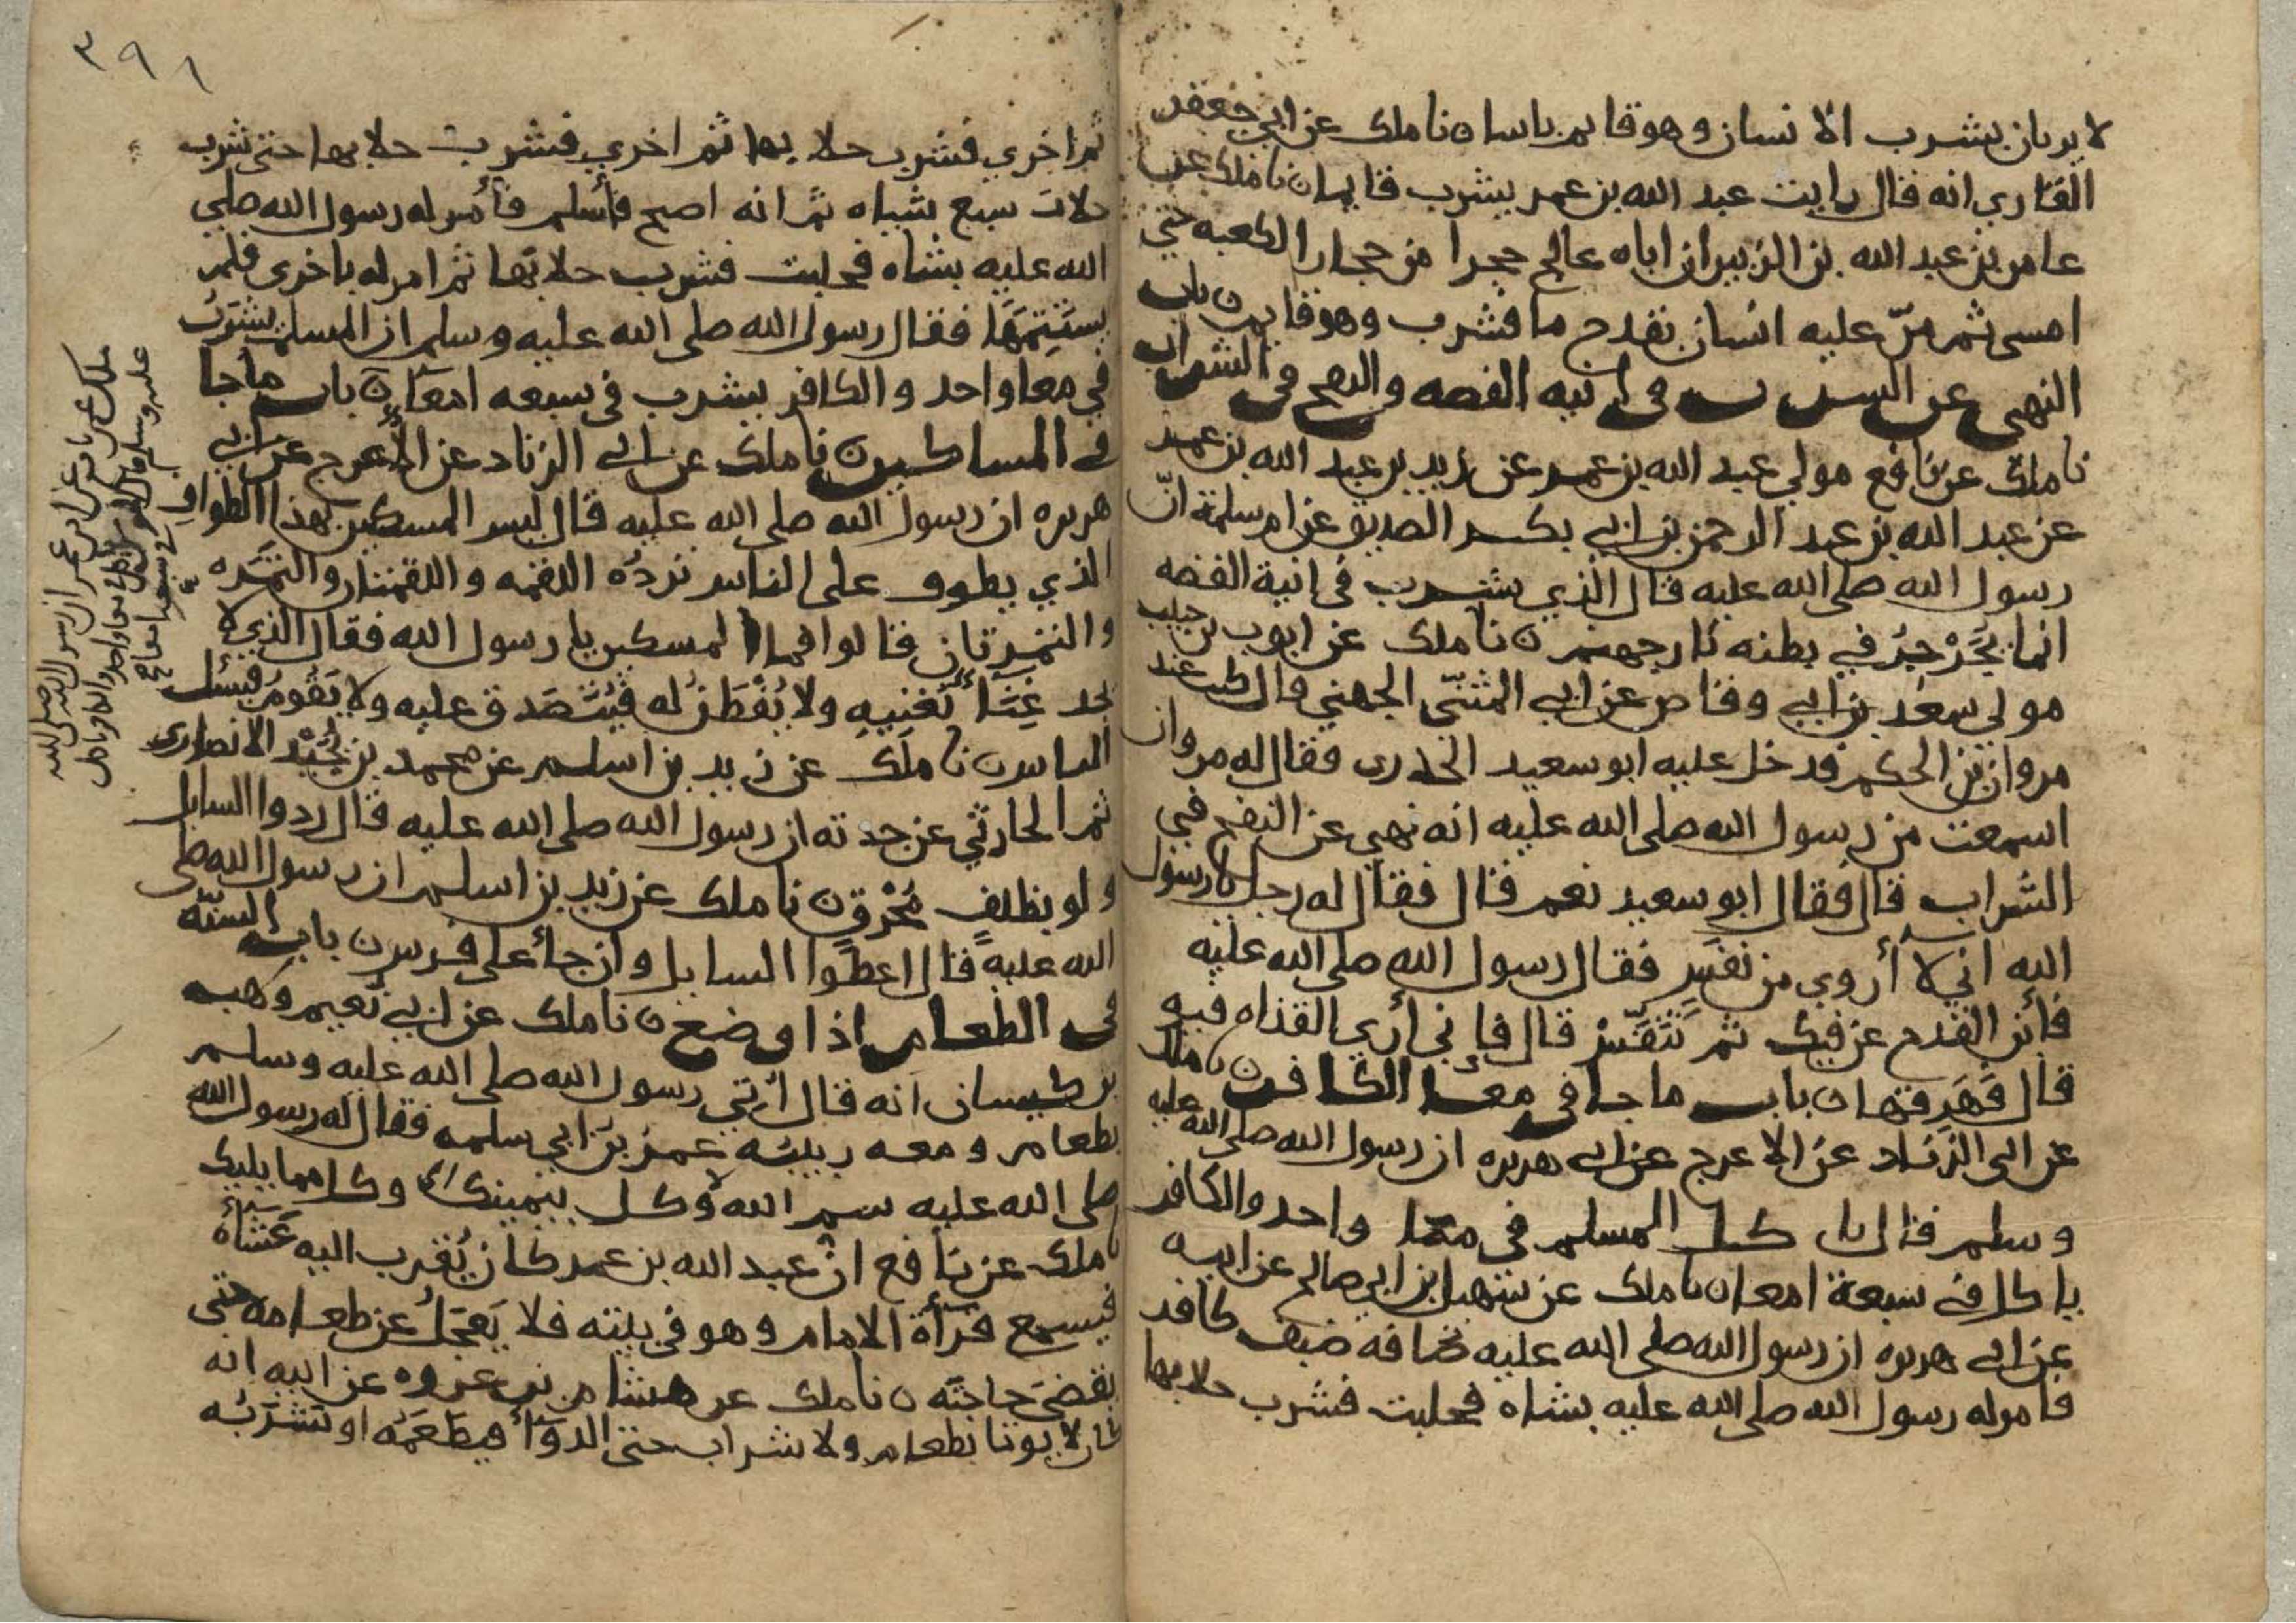 لا يريان بشرب الانسان وهو قايم باسا ن نا ملك عن ابي جعفر
القاري انه قال رايت عبد الله بن عمر يشرب قايما ن نا ملك عن
عامر بن عبد الله بن الزبير ان اباه عالج حجرا من حجار الكعبه حتى
امسى ثم مرّ عليه انسان بقدح ما فشرب وهو قايم ن باب
النهي عن الشرب في انيه الفضه والنفخ في الشراب
نا ملك عن نافع مولي عبد الله بن عمر عن زيد بن عبد الله بن عمر
عن عبد الله بن عبد الرحمن بن ابي بكر الصديق عن ام سلمة انّ
رسول الله صلى الله عليه قال الذي يشرب في انية الفضه
انما يُجَرْجِرُ في بطنه نار جهنم ن نا ملك عن ايوب بن حبيب
مولي سعد بن ابي وقاص عن ابي المثنّى الجهني قال كنت عند
مروان بن الحكم فدخل عليه ابو سعيد الخدري فقال له مروان
اسمعت من رسول الله صلى الله عليه انه نهي عن النفخ في
الشراب قال فقال ابو سعيد نعم قال فقال له رجل يا رسول
الله اني لا أروي من نفَسٍ فقال رسول الله صلى الله عليه
فأبن القدح عن فيك ثم تَنَفَّسْ قال فاني أري القذاه فيه
قال فَهَرِقها ن باب ما جا في معا الكافر ن نا ملك
عن ابي الزناد عن الاعرج عن ابي هريره ان رسول الله صلى الله عليه
وسلم قال يا كل المسلم في معًا واحد والكافر
ياكل في سبعة امعا ن نا ملك عن سهيل بن ابي صالح عن ابيه
عن ابي هريره ان رسول الله صلى الله عليه ضافه ضيف كافر
فامر له رسول الله صلى الله عليه بشاه فحلبت فشرب حلابها
٣٩١
ثم اخري فشرب حلابها ثم اخري فشرب حلابها حتى شرب
حلاب سبع شياه ثم انه اصبح فأسلم فأمر له رسول الله صلي
الله عليه بشاه فحلبت فشرب حلابها ثم امر له باخرى فلم
يستَتِمَّهَا فقال رسول الله صلى الله عليه وسلم ان المسلم يشرَبُ
في معا واحد والكافر يشرب في سبعه امعآءٍ ن باب ما جا
في المساكين ن نا ملك عن ابي الزناد عن الأعرج عن ابي
هريره ان رسول الله صلى الله عليه قال ليس المسكين بهذا الطواف
الذي يطوف على الناس تردُّه اللقمه واللقمتان والتمَره
والتمرتان قالوا فما المسكين يا رسول الله فقال الذي لا
يجد غِنًا يُغنِيهِ ولا يُفْطَنُ له فيُتَصَدق عليه ولا يَقُومُ فيسئل
الناس ن نا ملك عن زيد بن اسلم عن محمد بن بُجَيْد الانصاري
ثم الحارثي عن جدته ان رسول الله صلى الله عليه قال ردوا السايل
ولو بظلفٍ مُحْرقٍ ن نا ملك عن زيد بن اسلم ان رسول الله صلى
الله عليه قال اعطوا السايل وان جأ على فرس ن باب السنّه
في الطعام اذا وضع ن نا ملك عن ابي نُعيم وهب
بن كيسان انه قال أُتي رسول الله صلى الله عليه وسلم
بطعام ومعه ربيبُه عمر بن ابي سلمه فقال له رسول الله
صلى الله عليه سم الله وكل بيمينك وكل مما يليك
نا ملك عن نافع انّ عبد الله بن عمر كان يُقرب اليه عَشَاؤُه
فيسمع قرأة الامام وهو في بيته فلا يَعجَلُ عن طعامه حتى
يقضيَ حاجته ن نا ملك عن هشام بن عروه عن ابيه انه
كان لا يوتا بطعام ولا شراب حتى الدوآأ فيطعَمَه او يشرَبُه
ملك عن نافع عن ابن عمر ان رسول الله صلى الله
عليه وسلم قال المومن ياكل في معا واحد والكافر ياكل
في سبعة امعا
صح